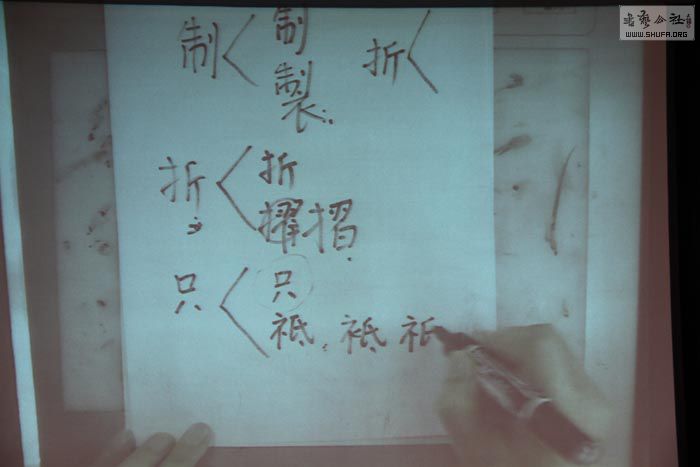 書藝公社
WWW.SHUFA.ORG
制 制 折
製
折 折
摺
只 只
祗 袛